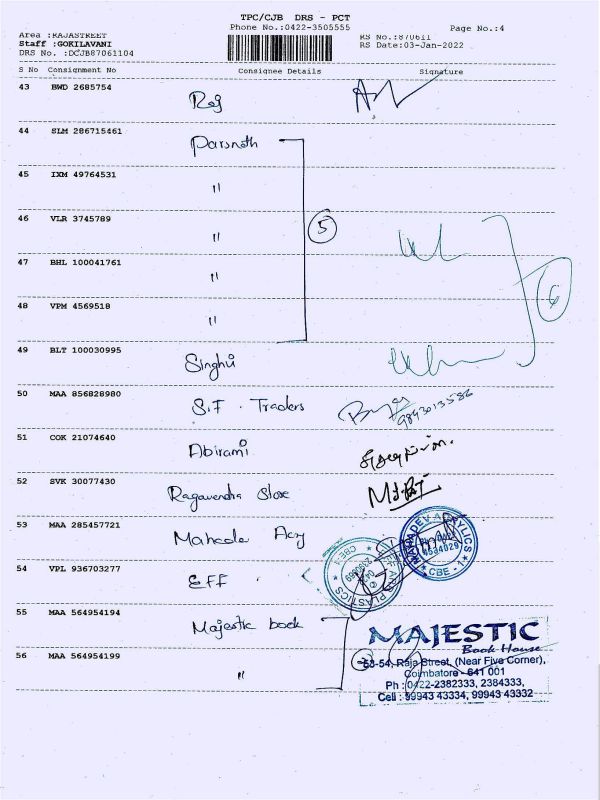 TPC/CJB DRS - PCT
Phone No.:0422-3505555
Page No.:4
Area :RAJASTREET
Staff :GOKILAVANI
DRS No. :DCJB87061104
RS No.:870611
RS Date:03-Jan-2022
S No Consignment No Consignee Details Signature
43 BWD 2685754 Raj
44 SLM 286715461 Parsnath
45 IXM 49764531 "
46 VLR 3745789 " 5
47 BHL 100041761 "
48 VPM 4569518 "
6
49 BLT 100030995 Singhvi
50 MAA 856828980 S.F. Traders 9843013586
51 COK 21074640 Abirami
52 SVK 30077430 Ragavendra Store
53 MAA 285457721 Mahadev Acry
MAHADEV ACRYLICS
CBE - 1
54 VPL 936703277 EFF
PLASTICS
CBE-1
55 MAA 564954194 Majestic book
56 MAA 564954199 "
MAJESTIC
Book House
53-54, Raja Street, (Near Five Corner),
Coimbatore - 641 001
Ph : 0422-2382333, 2384333,
Cell : 99943 43334, 99943 43332